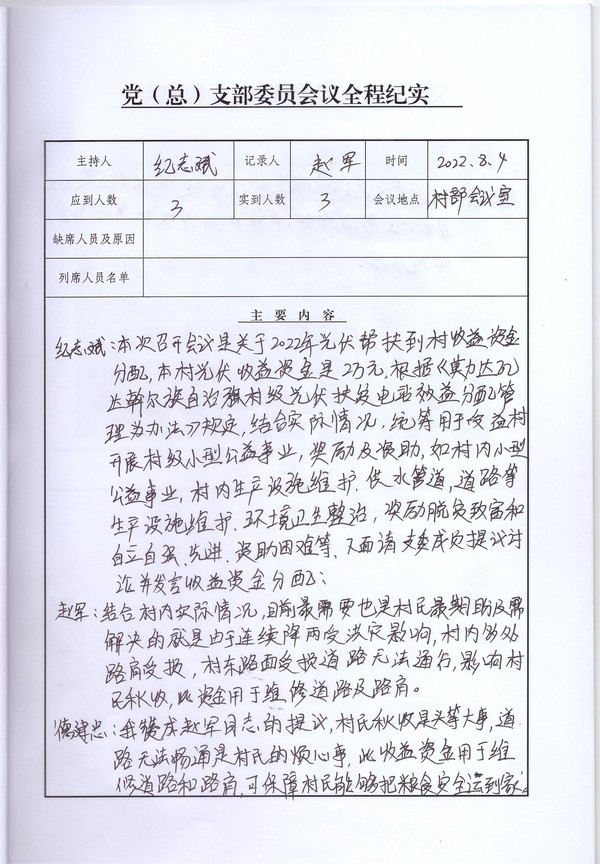 党（总）支部委员会议全程纪实
主持人 纪志斌 记录人 赵军 时间 2022.8.4
应到人数 3 实到人数 3 会议地点 村部会议室
缺席人员及原因
列席人员名单
主要内容
纪志斌：本次召开会议是关于2022年光伏帮扶到村收益资金
分配，本村光伏收益资金是2万元，根据《莫力达瓦
达斡尔族自治旗村级光伏扶贫电站效益分配管
理办法》规定，结合实际情况，统筹用于受益村
开展村级小型公益事业，奖励及资助，如村内小型
公益事业，村内生产设施维护、供水管道，道路等
生产设施维护、环境卫生整治，奖励脱贫致富和
自立自强、先进、资助困难等、下面请支委成员提议讨
论并发言收益资金分配：
赵军：结合村内实际情况，目前最需要也是村民最期盼及需
解决的就是由于连续降雨受洪灾影响，村内多处
路肩受损，村东路面受损道路无法通行，影响村
民秋收，此资金用于维修道路及路肩。
忠：我赞成赵军同志的提议，村民秋收是头等大事，道
路无法畅通是村民的烦心事，此收益资金用于维
修道路和路肩，可保障村民能够把粮食安全运到家。